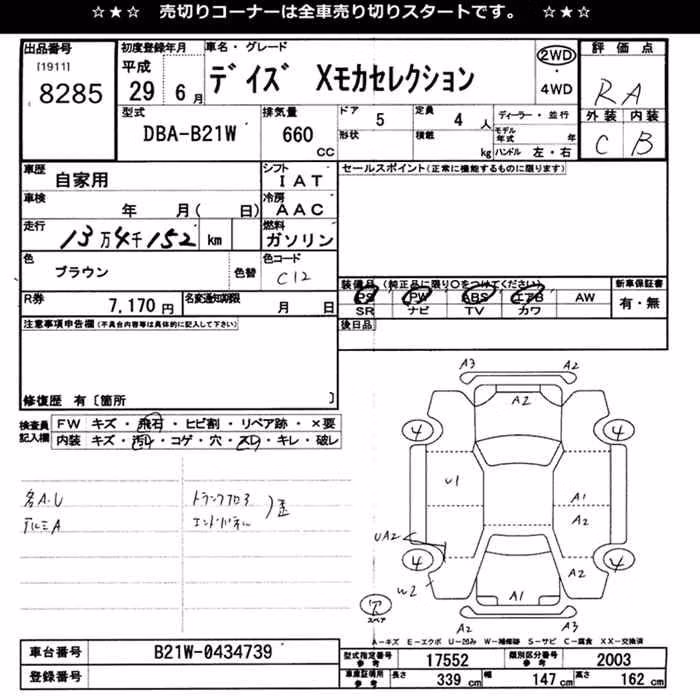 ☆★☆ 売切りコーナーは全車売り切りスタートです。 ☆★☆
出品番号 初度登録年月 車名・グレード 2WD 評価点
[1911] 平成 デイズ Xモカセレクション ・
8285 29 6月 4WD RA
型式 排気量 ドア 5 定員 4人 ディーラー・並行 外装 内装
DBA-B21W 660 CC 形状 積載 kg モデル年式 年 C B
ハンドル 左・右
車歴 自家用 シフト IAT セールスポイント(正常に機能するものに限ります)
車検 年 月( 日) 冷房 AAC
走行 13万4千152 km 燃料 ガソリン
色 ブラウン 色替 色コード C12
装備品(純正品に限り○をつけてください) 新車保証書
R券 7,170円 名変通知期限 月 日 PS PW ABS エアB AW 有・無
SR ナビ TV カワ
注意事項申告欄(不具合内容等は具体的に記入して下さい) 後日品
修復歴 有〔箇所 〕
検査員記入欄 FW キズ・飛石・ヒビ割・リペア跡・×要
内装 キズ・汚レ・コゲ・穴・スレ・キレ・破レ
各A.U トランクフロア
アルミA エンドパネル
歪
A3 A2
A2
4 4
U1 A1
A2
UA2
4 4
A2
W2
A1
スペア
A2 A3
A-キズ E-エクボ U-凹み W-補修跡 S-サビ C-腐食 XX-交換済
車台番号 B21W-0434739 型式指定番号 参考 17552 類別区分番号 参考 2003
登録番号 車庫証明用 参考 長さ 339 cm 幅 147 cm 高さ 162 cm